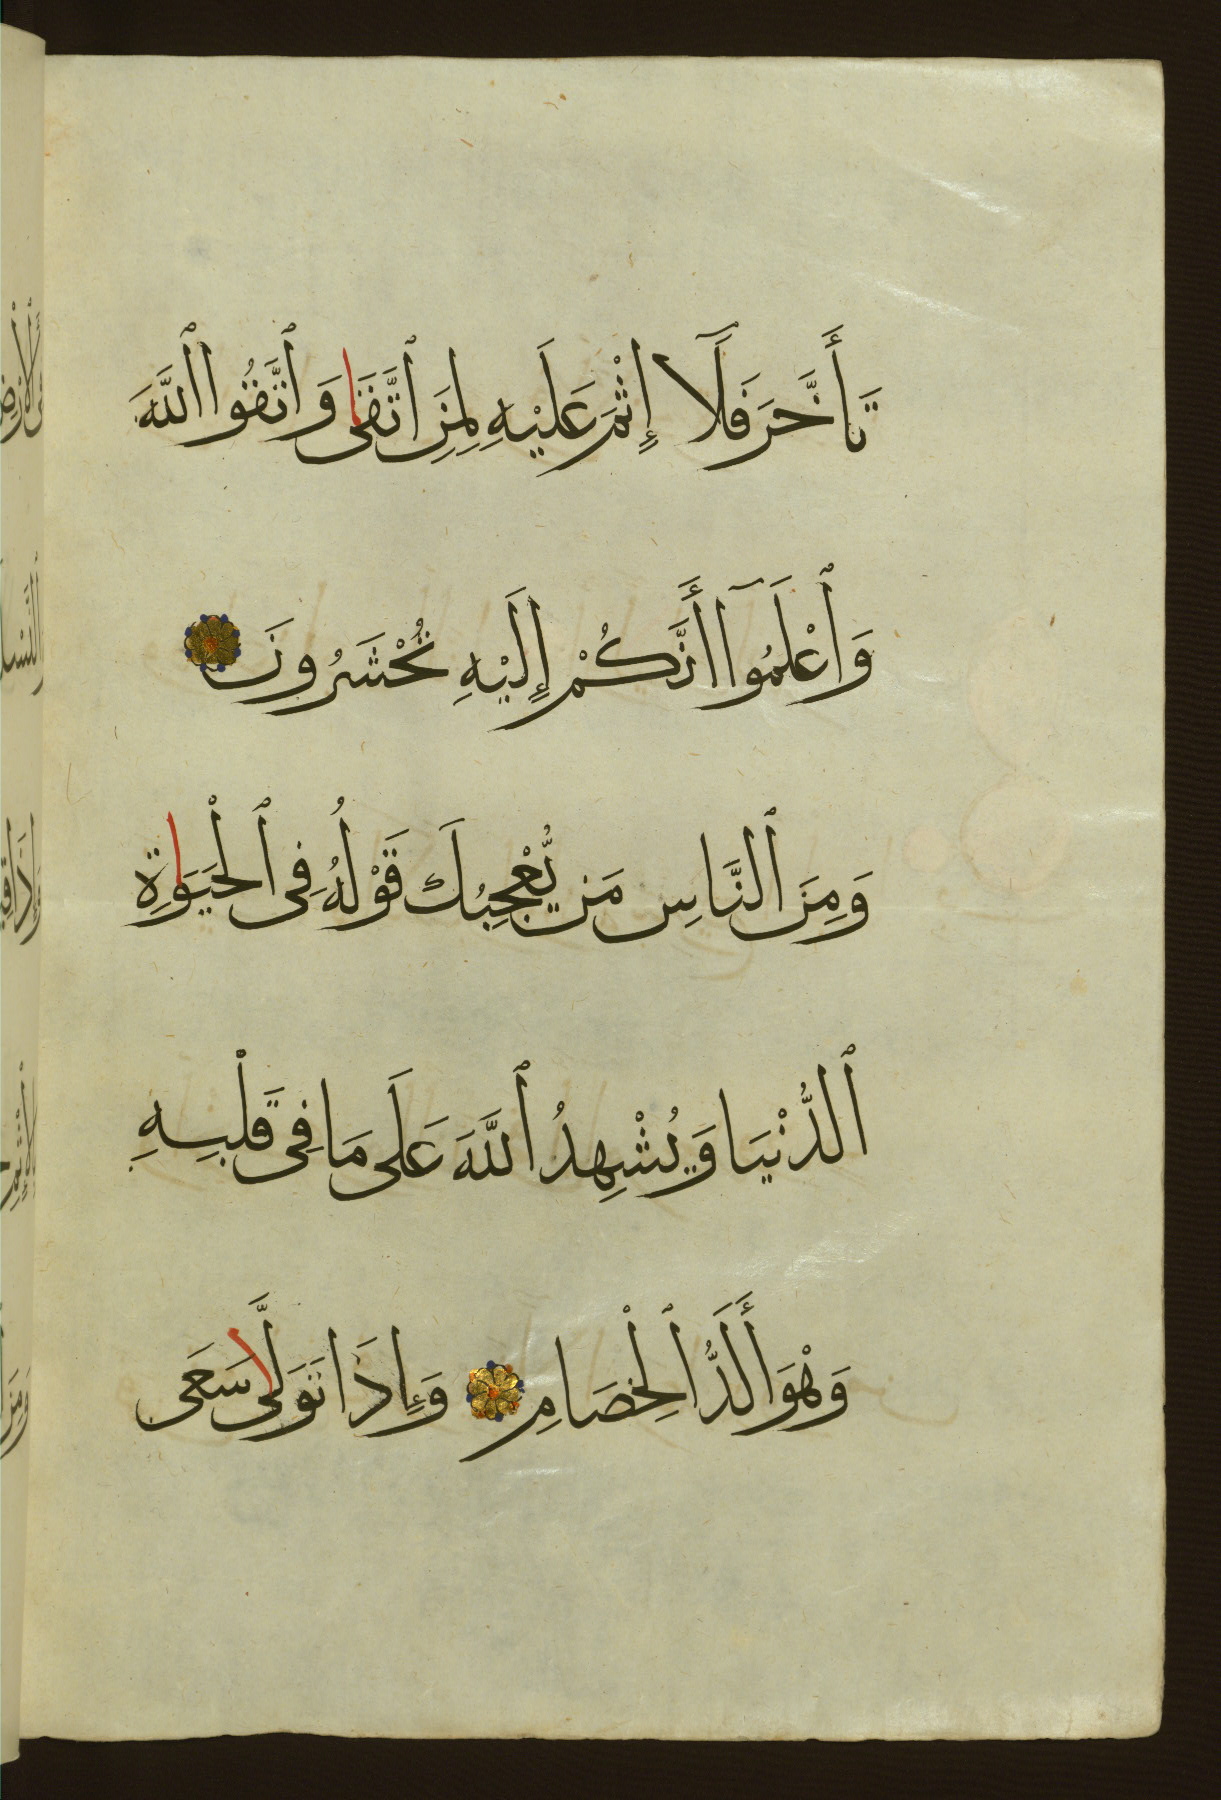 تَأَخَّرَ فَلَآ إِثْمَ عَلَيْهِ لِمَنِ ٱتَّقَىٰ وَٱتَّقُوا ٱللَّهَ
وَٱعْلَمُوٓا أَنَّكُمْ إِلَيْهِ تُحْشَرُونَ
وَمِنَ ٱلنَّاسِ مَن يُّعْجِبُكَ قَوْلُهُ فِى ٱلْحَيَوٰةِ
ٱلدُّنْيَا وَيُشْهِدُ ٱللَّهَ عَلَى مَا فِى قَلْبِهِ
وَهْوَ أَلَدُّ ٱلْخِصَامِ وَإِذَا تَوَلَّىٰ سَعَى